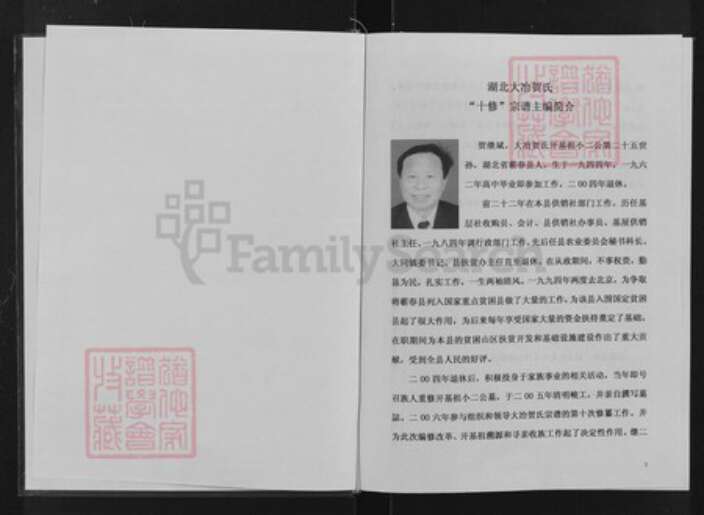 湖北大冶贺氏
“十修”宗谱主编简介
贺继斌，大冶贺氏开基祖小二公第二十五世
孙，湖北省蕲春县人，生于一九四四年，一九六
二年高中毕业即参加工作，二00四年退休。
前二十二年在本县供销社部门工作，历任基
层社收购员、会计、县供销社办事员、基层供销
社主任，一九八四年调行政部门工作，先后任县农业委员会秘书科长、
大同镇委书记、县扶贫办主任直至退休。在从政期间，不事权贵，勤
恳为民，扎实工作，一生两袖清风。一九九四年两度去北京，为争取
将蕲春县列入国家重点贫困县做了大量的工作，为该县入围国定贫困
县起了很大作用，为后来每年享受国家大量的资金扶持奠定了基础。
在职期间为本县的贫困山区扶贫开发和基础设施建设作出了重大贡
献，受到全县人民的好评。
二00四年退休后，积极投身于家族事业的相关活动，当年即号
召族人重修开基祖小二公墓，于二00五年清明竣工，并亲自撰写墓
志。二00六年参与组织和领导大冶贺氏宗谱的第十次修纂工作，并
为此次编修改革、开基祖溯源和寻亲收族工作起了决定性作用。继二
FamilySearch
譜學會
特藏